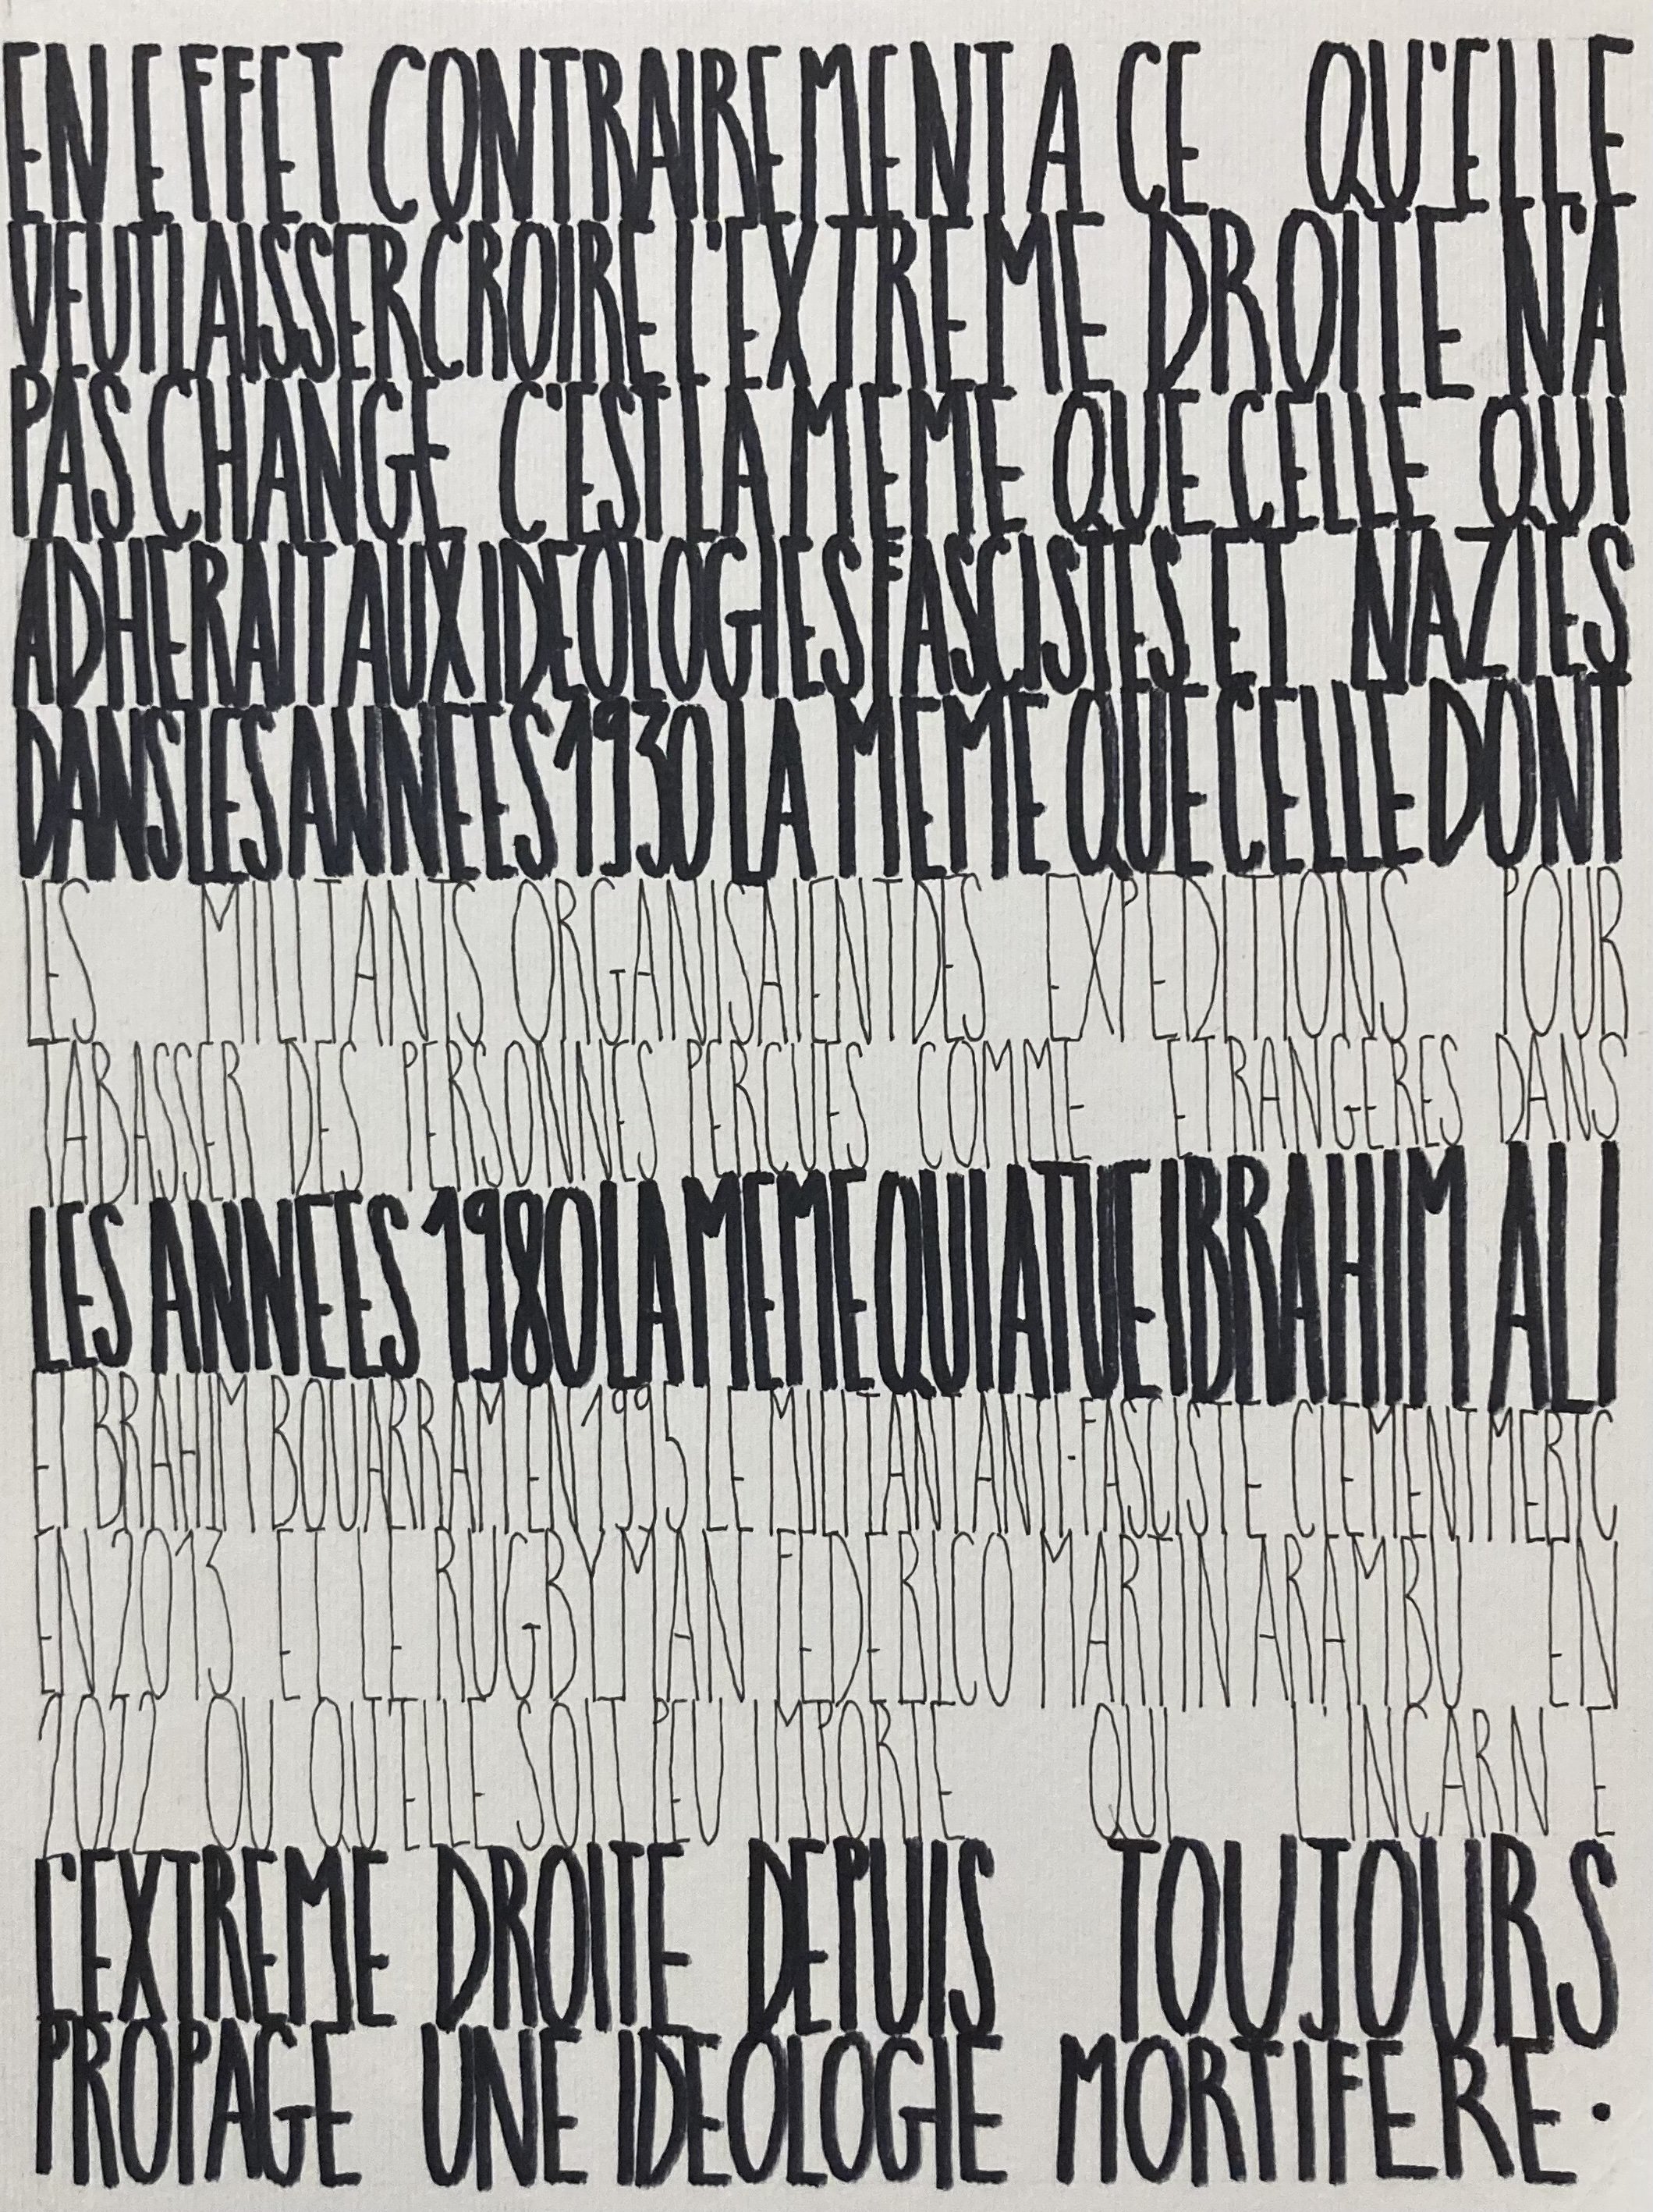 EN EFFET CONTRAIREMENT A CE QU'ELLE
VEUT LAISSER CROIRE L'EXTREME DROITE N'A
PAS CHANGE C'EST LA MEME QUE CELLE QUI
ADHERAIT AUX IDEOLOGIES FASCISTES ET NAZIES
DANS LES ANNEES 1930 LA MEME QUE CELLE DONT
LES MILITANTS ORGANISAIENT DES EXPEDITIONS POUR
TABASSER DES PERSONNES PERCUES COMME ETRANGERES DANS
LES ANNEES 1980 LA MEME QUI A TUE IBRAHIM ALI
ET BRAHIM BOUARRAM EN 1995 LE MILITANT ANTI-FASCISTE CLEMENT MERIC
EN 2013 ET LE RUGBYMAN FEDERICO MARTIN ARAMBU EN
2022 OU QU'ELLE SOIT PEU IMPORTE QUI L'INCARNE
L'EXTREME DROITE DEPUIS TOUJOURS
PROPAGE UNE IDEOLOGIE MORTIFERE.